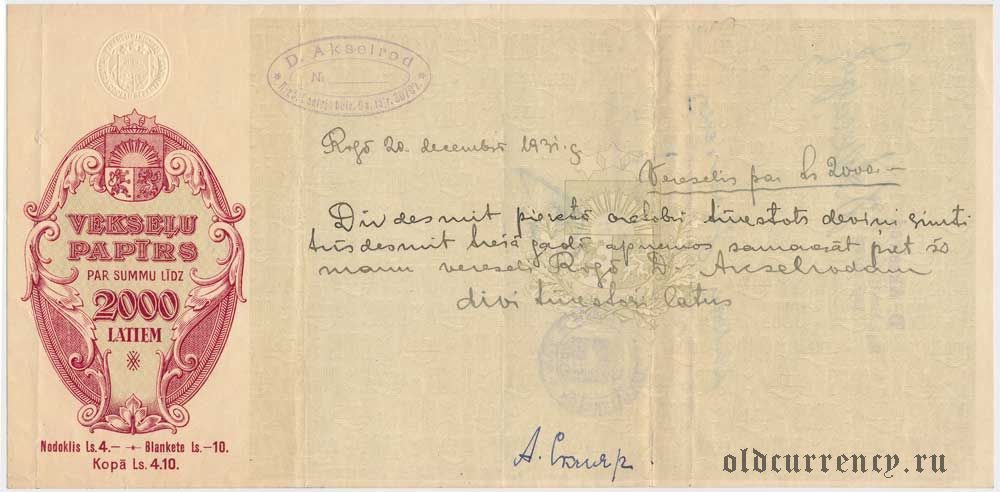 VEKSEĻU
PAPĪRS
PAR SUMMU LĪDZ
2000
LATIEM
Nodoklis Ls.4.— Blankete Ls.—10.
Kopā Ls. 4.10.
D. Akselrod
№
Rīgā 20. decembrī 1931. g
Vekselis par Ls 2000.—
Divdesmit piektā oktobrī tūkstots deviņi simti
trīsdesmit trejā gadā apņemos samaksāt pret šo
manu vekseli Rīgā D. Akselrodam
divi tūkstoši latus
oldcurrency.ru